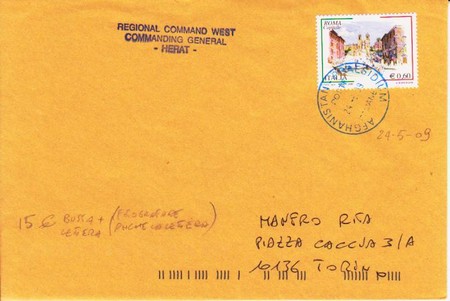 REGIONAL COMMAND WEST
COMMANDING GENERAL
- HERAT -
ROMA
ITALIA € 0,60
AFGHANISTAN
24-5-09
15 € BUSTA +
LETTERA
MANERO RITA
PIAZZA CACCIA 3/A
10136 TORINO